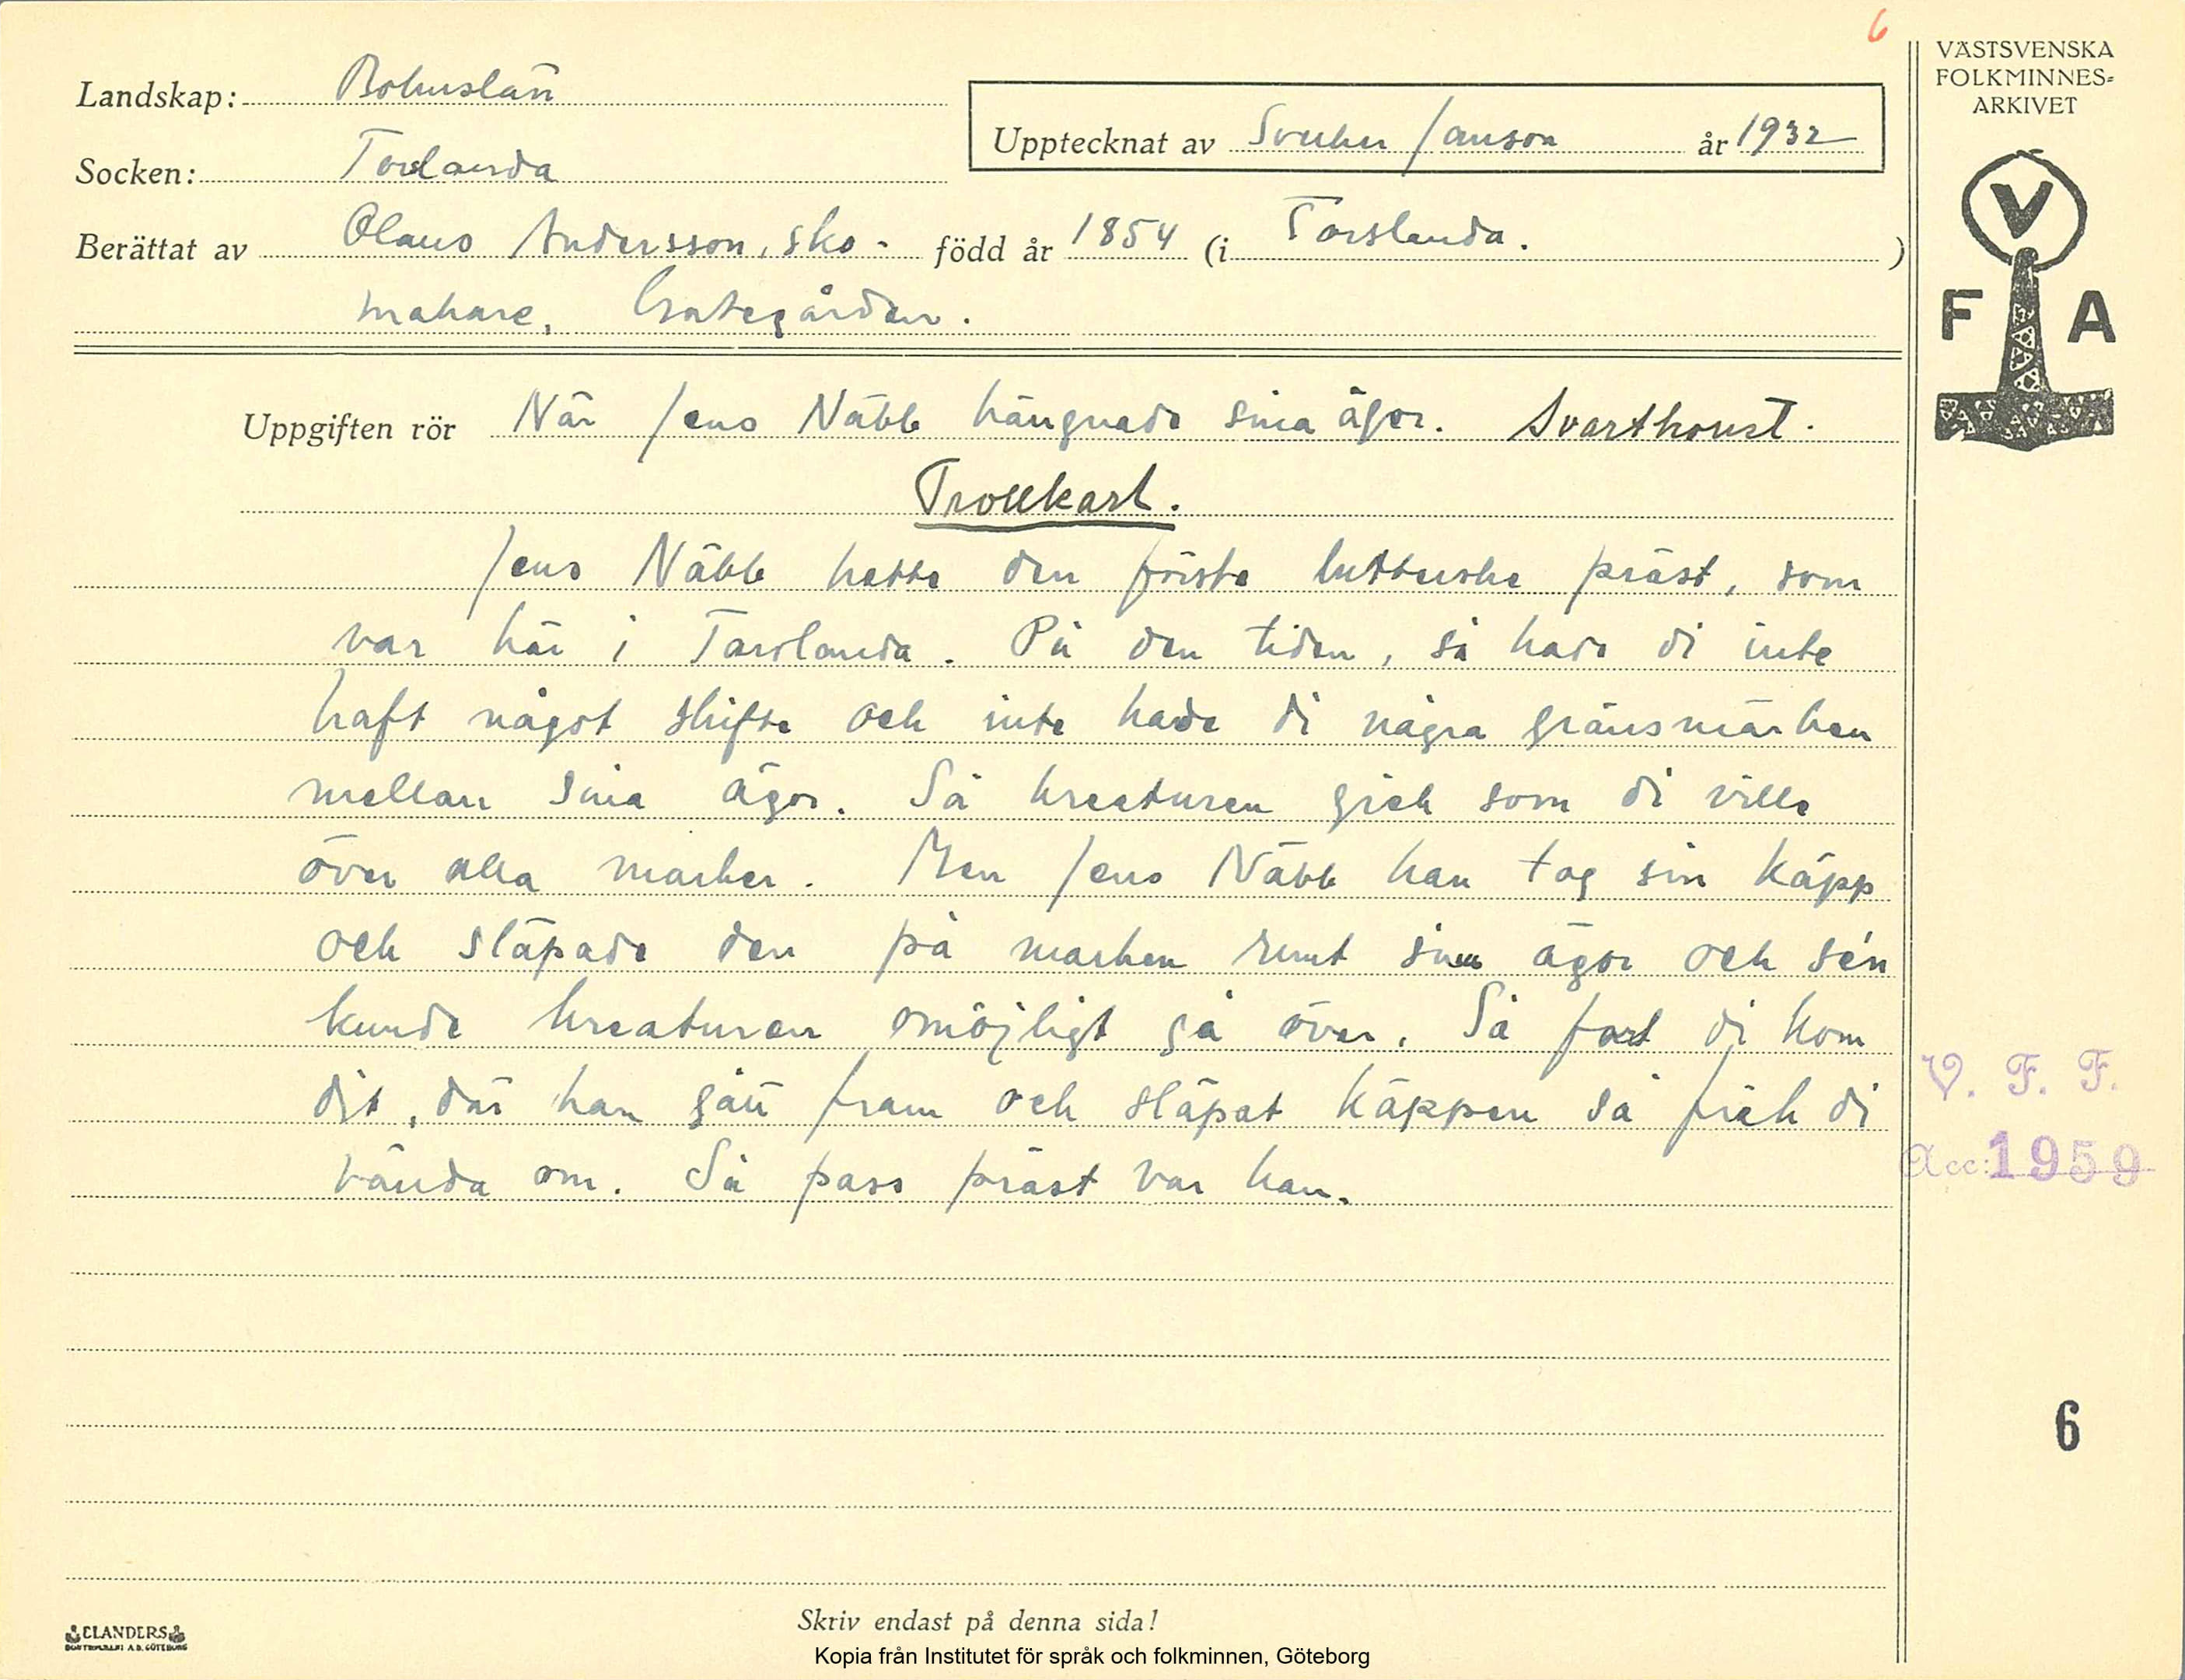 6
VÄSTSVENSKA
FOLKMINNES=
ARKIVET
Landskap: Bohuslän
Upptecknat av Sverker Janson år 1932
Socken: Torslanda
Berättat av Olaus Andersson, sko- född år 1854 (i Torslanda. )
makare, Gategården.
V
F A
Uppgiften rör När Jens Näbb hängnade sina ägor. Svartkonst.
Trollkarl.
Jens Näbb hette den förste lutterske präst, som
var här i Torslanda. På den tiden, så hade di inte
haft något skifte och inte hade di några gränsmärken
mellan sina ägor. Så kreaturen gick som di ville
över alla marker. Men Jens Näbb han tog sin käpp
och släpade den på marken runt sina ägor och sén
kunde kreaturen omöjligt gå över. Så fort di kom
dit, där han gått fram och släpat käppen så fick di
vända om. Så pass präst var han.
V. F. F.
Acc: 1959
6
Skriv endast på denna sida!
ELANDERS
BOKTRYCKERI A.B. GÖTEBORG
Kopia från Institutet för språk och folkminnen, Göteborg